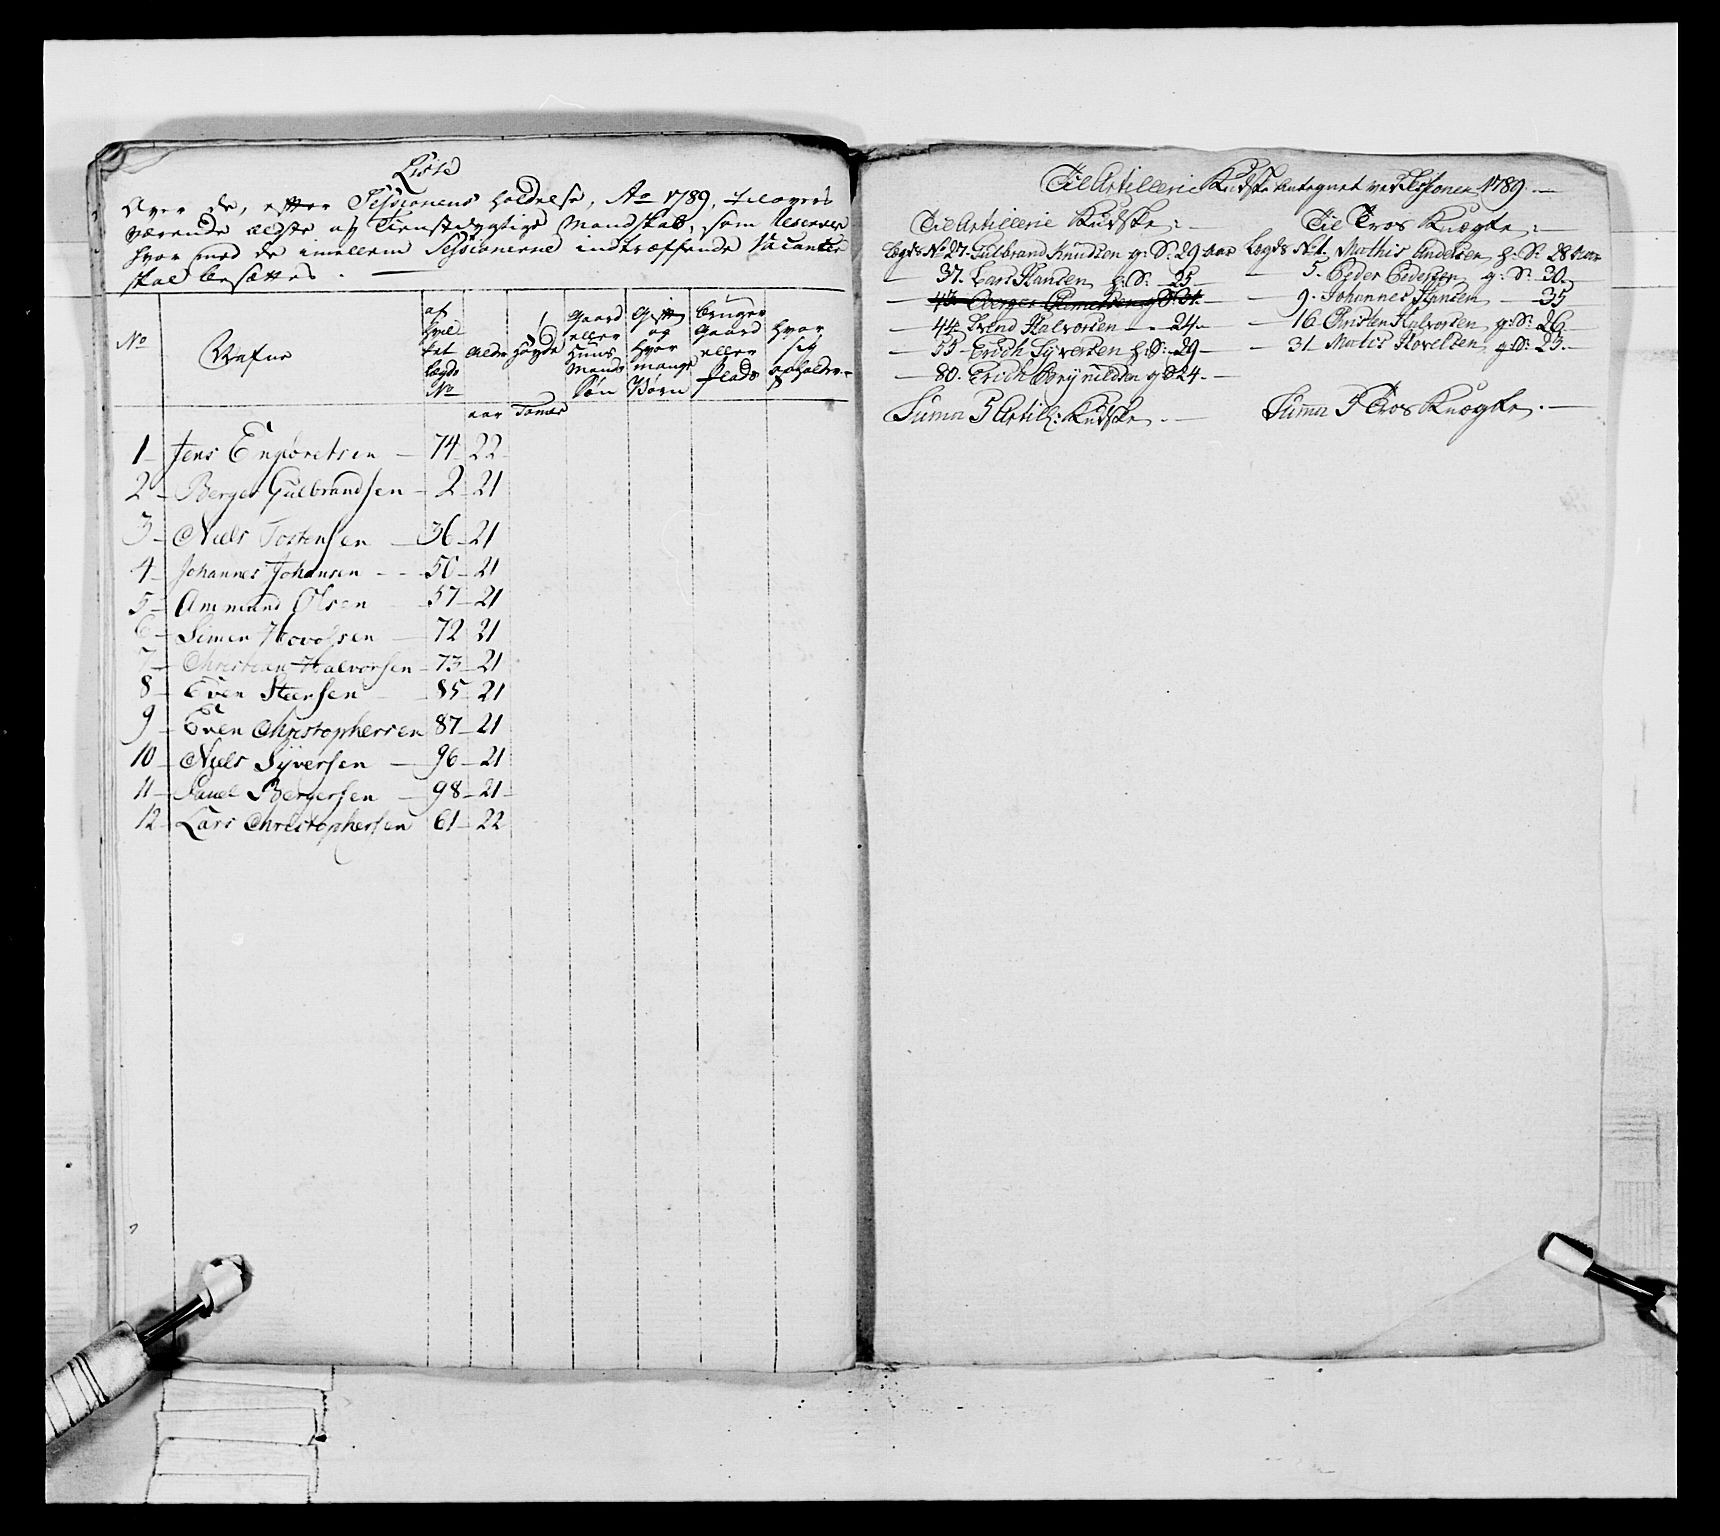 Liste
Over de, efter Sessionens holdelse, Ao 1789, tilovers
værende ældste af Tienstdygtige Mandskab, som Reserver
hvor med de imellem Sessionerne indtræffende Vacantser
skal besættes.
No
Nafne
af hvilket Lægds No
Alder
Høyde
Gaard eller Huus Mands Søn
Gift og hvor mange Børn
bruger Gaard eller Plads
hvor sig opholder
aar Tomer
1 Jens Engbretsen 74 22
2 Berger Gulbrandsen 2 21
3 Niels Tostensen 36 21
4 Johannes Johansen 50 21
5 Ammund Olsen 57 21
6 Simen Hovelsen 72 21
7 Christian Halvorsen 73 21
8 Even Steensen 85 21
9 Even Christophersen 87 21
10 Niels Syversen 96 21
11 Paul Bergersen 98 21
12 Lars Christophersen 61 22
Til Artillerie Kudske Antegnet ved Sessionen 1789.
Til Artillerie Kudske:
Lægds No 27. Gulbrand Knudsen g: S: 29 Aar
37. Lars Hansen h: S: 25
43. Berger Gunersen g S: 31.
44 Svend Halvorsen 24
55 Erich Syversen h: S: 29
80. Erich Brynildsen g S 24.
Suma 5 Artil: Kudske.
Til Tros Knægte:
Lægds No 1. Mathis Andersen h: S: 28 Aar
5. Peder Pedersen g: S: 30.
9. Johannes Hansen 35
16. Christen Halvorsen g: S: 26
31. Matis Hovelsen g: S: 23.
Suma 5 Tros Knægte.